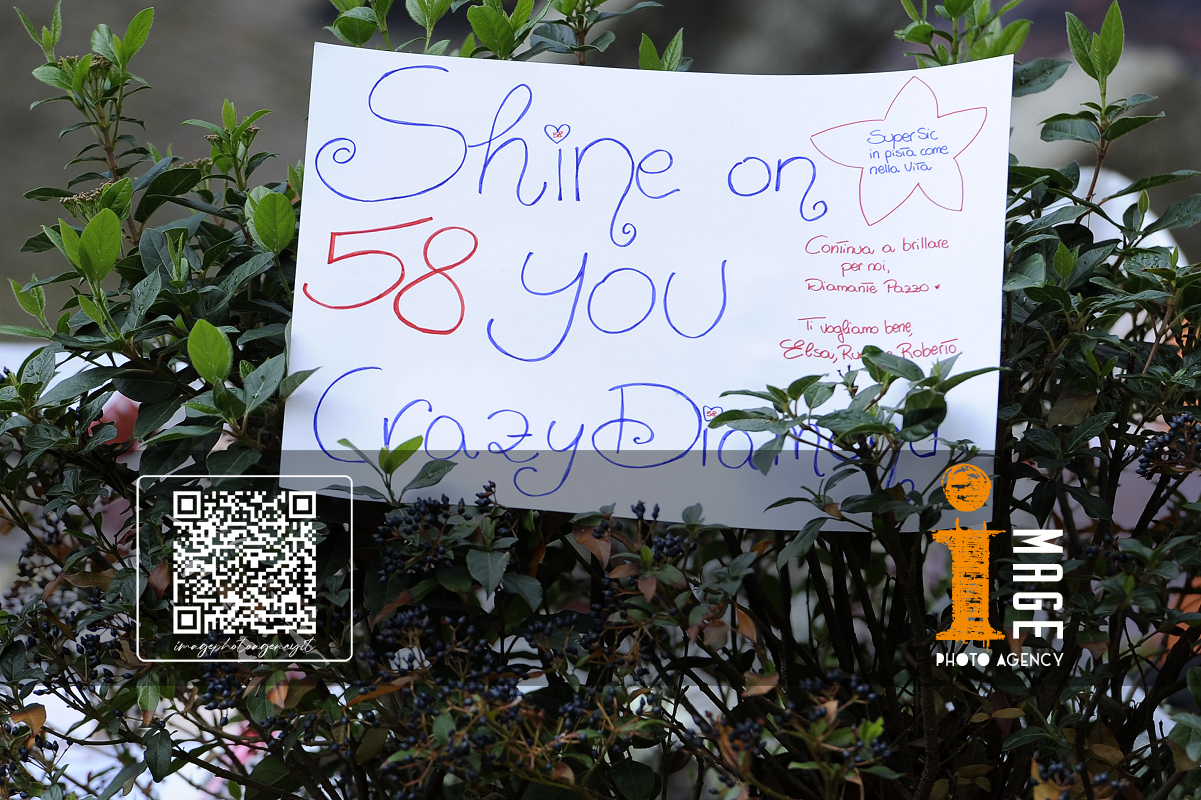 Shine on
58 you
Crazy Diamond
Super Sic
in pista come
nella vita
Continua a brillare
per noi,
Diamante Pazzo
Ti vogliamo bene,
Elsa, Roberto
58
58
imagephotoagency.it
IMAGE
PHOTO AGENCY